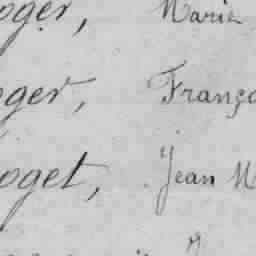 oger, Marie
oger, Franço
oget, Jean M